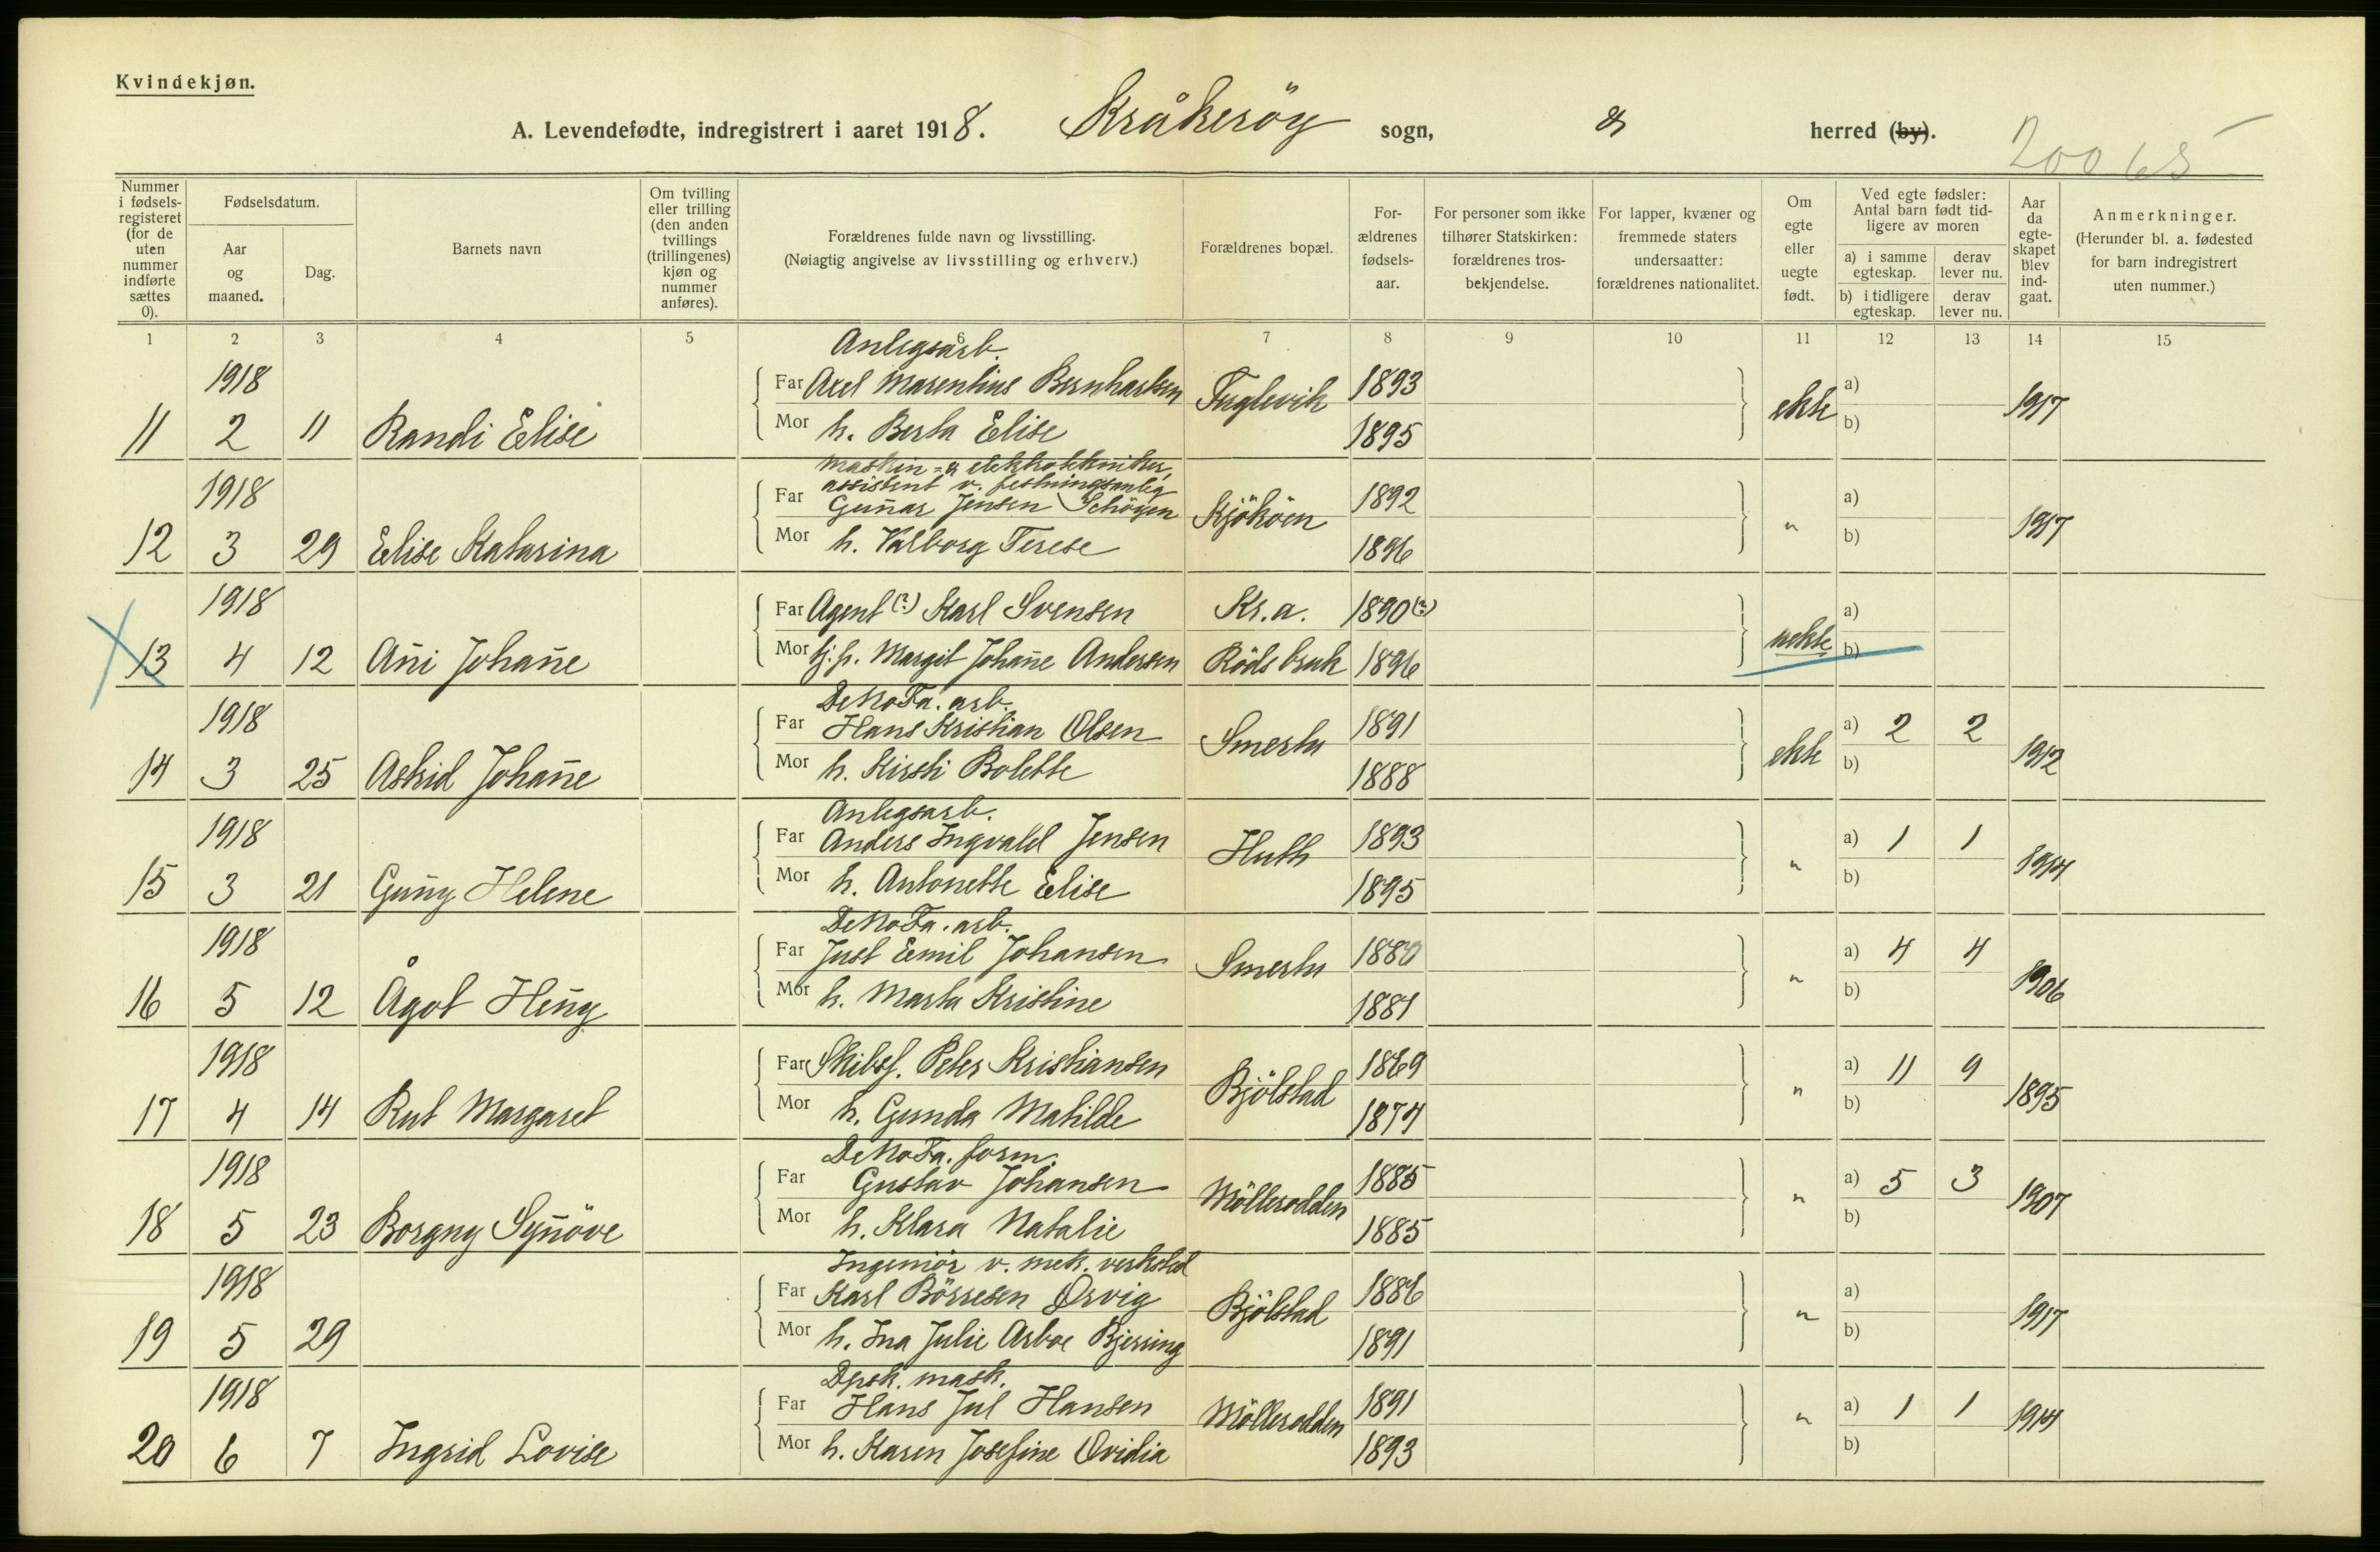 Kvindekjøn.
A. Levendefødte, indregistrert i aaret 1918. Kråkeröy sogn, & herred (by).
20065
Nummer i fødsels-registeret (for de uten nummer indførte sættes 0).
Fødselsdatum.
Aar og maaned.
Dag.
Barnets navn
Om tvilling eller trilling (den anden tvillings (trillingenes) kjøn og nummer anføres).
Forældrenes fulde navn og livsstilling.
(Nøiagtig angivelse av livsstilling og erhverv.)
Forældrenes bopæl.
For-ældrenes fødsels-aar.
For personer som ikke tilhører Statskirken: forældrenes tros-bekjendelse.
For lapper, kvæner og fremmede staters undersaatter: forældrenes nationalitet.
Om egte eller uegte født.
Ved egte fødsler: Antal barn født tid-ligere av moren
a) i samme egteskap.
derav lever nu.
b) i tidligere egteskap.
derav lever nu.
Aar da egte-skapet blev ind-gaat.
Anmerkninger.
(Herunder bl. a. fødested for barn indregistrert uten nummer.)
1 2 3 4 5 6 7 8 9 10 11 12 13 14 15
Anlegsarb.
1918 Far Axel Marentius Bernhartsen Fuglevik 1893 ekte a) 1917
11 2 11 Randi Elise Mor h. Berta Elise 1895 b)
Maskin- & elektrotekniker,
assistent v. festningsanleg
1918 Far Gun̄ar Jensen Schöyen Kjököen 1892 " a) 1917
12 3 29 Elise Katarina Mor h. Valborg Terese 1896 b)
1918 Far Agent (?) Karl Svensen Kr.a. 1890 (?) uekte a)
13 4 12 An̄i Johan̄e Mor tj.p. Margit Johan̄e Andersen Röds bruk 1896 b)
DeNoFa. arb.
1918 Far Hans Kristian Olsen Smertu 1891 ekte a) 2 2 1912
14 3 25 Astrid Johan̄e Mor h. Kirsti Bolette 1888 b)
Anlegsarb.
1918 Far Anders Ingvald Jensen Huth 1893 " a) 1 1 1914
15 3 21 Gun̄y Helene Mor h. Antonette Elise 1895 b)
DeNoFa. arb.
1918 Far Just Emil Johansen Smertu 1880 " a) 4 4 1906
16 5 12 Ågot Hen̄y Mor h. Marta Kristine 1881 b)
1918 Far Skibsf. Peter Kristiansen Bjölstad 1869 " a) 11 9 1895
17 4 14 Rut Margaret Mor h. Gunda Matilde 1874 b)
DeNoFa. form.
1918 Far Gustav Johansen Möllerodden 1885 " a) 5 3 1907
18 5 23 Borgny Syn̄öve Mor h. Klara Natalie 1885 b)
Ingeniör v. mek. verksted
1918 Far Karl Börresen Ørvig Bjölstad 1886 " a) 1917
19 5 29 Mor h. Ina Julie Arboe Bjerring 1891 b)
Dpsk. mask.
1918 Far Hans Jul Hansen Möllerodden 1891 " a) 1 1 1914
20 6 7 Ingrid Lovise Mor h. Karen Josefine Ovidia 1893 b)